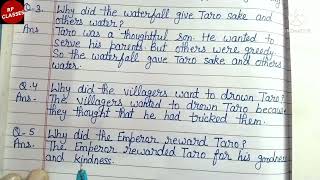 RP CLASSES
Q-3. Why did the waterfall give Taro sake and
others water?
Ans Taro was a thoughtful son. He wanted to
serve his parents. But others were greedy.
So the waterfall gave Taro sake and others
water.
Q.4 Why did the villagers want to drown Taro?
Ans- The villagers wanted to drown Taro because
they thought that he had tricked them.
Q-5 Why did the Emperor reward Taro?
Ans. The Emperor rewarded Taro for his goodness
and kindness.